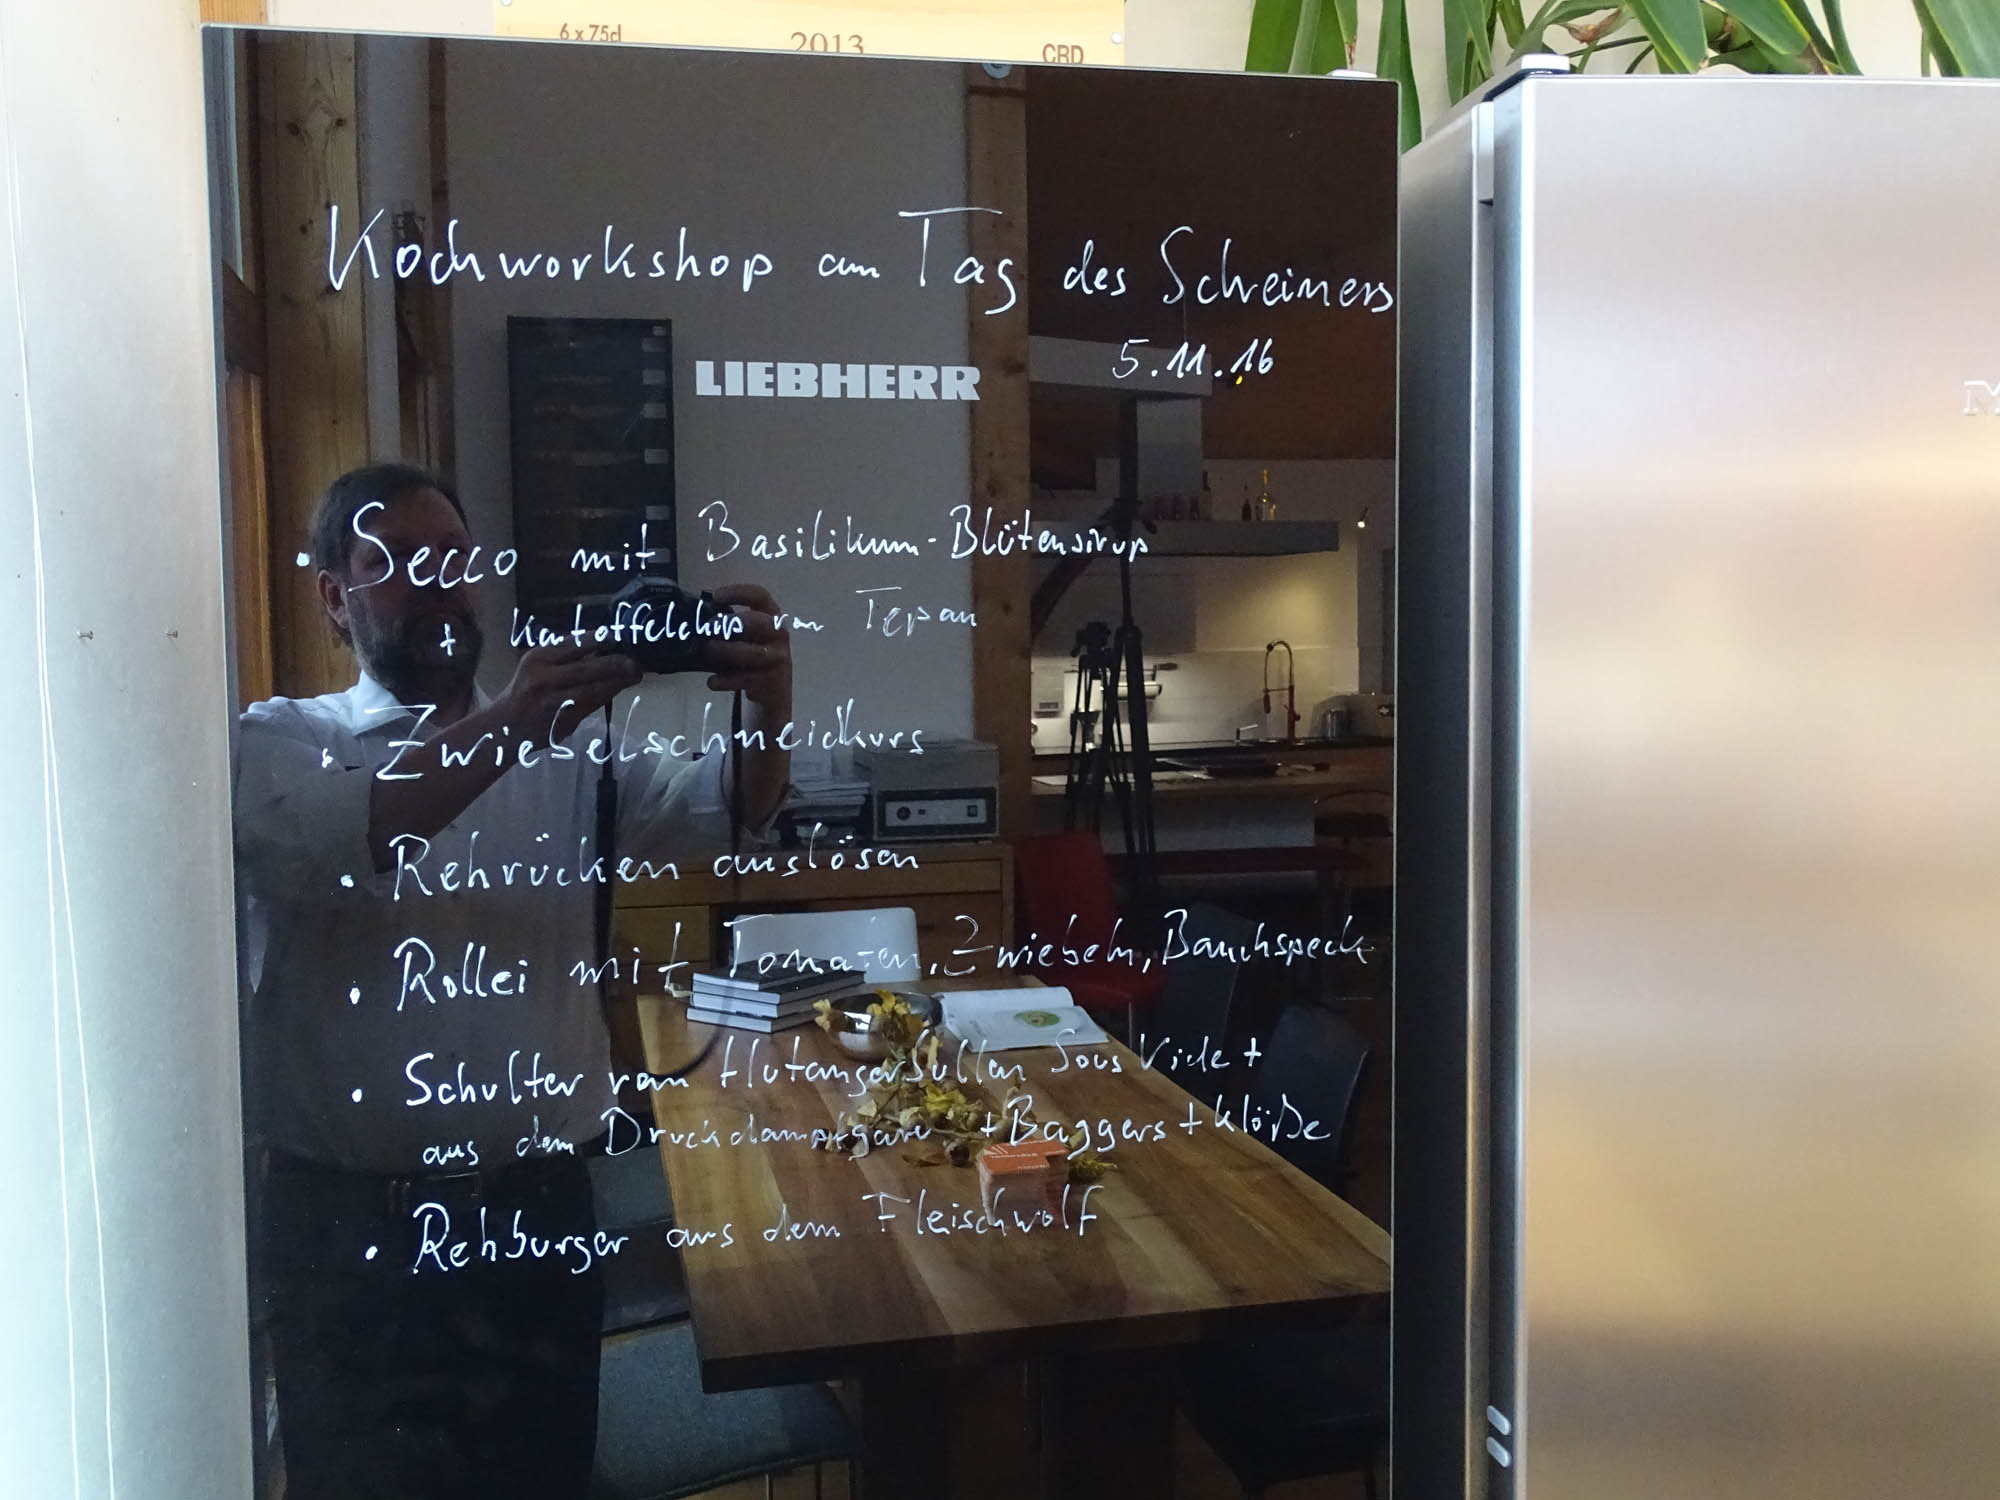 6 x 75cl 2013 CBD
Kochworkshop am Tag des Schreiners
5.11.16
LIEBHERR
• Secco mit Basilikum-Blütensirup
+ Kartoffelchips vom Tepan
• Zwiebelschneidkurs
• Rehrücken auslösen
• Rollei mit Tomaten, Zwiebeln, Bauchspeck
• Schulter vom Hutangerbullen Sous Vide +
aus dem Druckdampfgarer + Baggers + Klöße
• Rehburger aus dem Fleischwolf